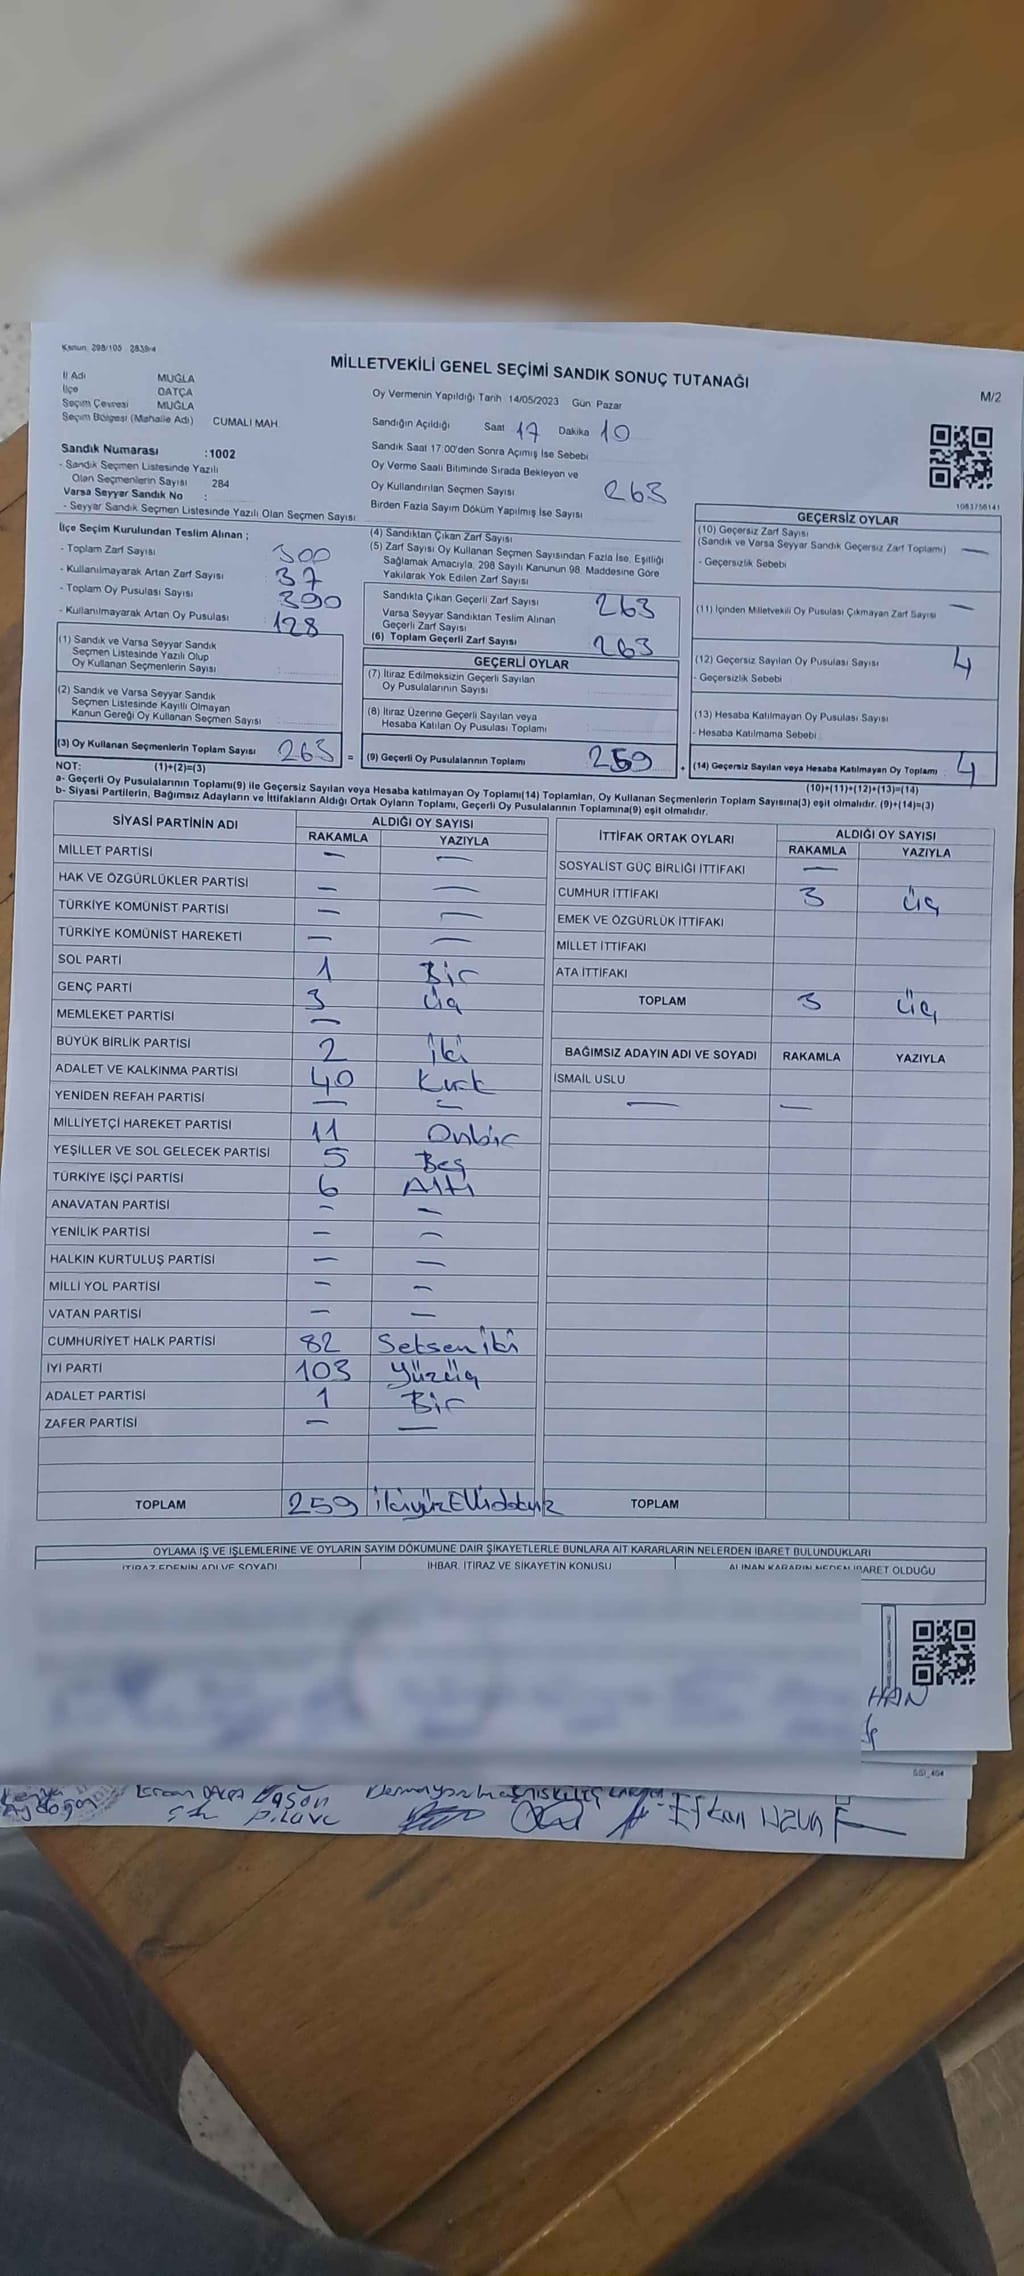 Kanun: 298/105 2839/4
MİLLETVEKİLİ GENEL SEÇİMİ SANDIK SONUÇ TUTANAĞI
M/2
İl Adı MUĞLA
İlçe DATÇA
Seçim Çevresi MUĞLA
Seçim Bölgesi (Mahalle Adı) CUMALI MAH.
Oy Vermenin Yapıldığı Tarih 14/05/2023 Gün Pazar
Sandığın Açıldığı Saat 17 Dakika 10
Sandık Saat 17:00'den Sonra Açımış İse Sebebi
Oy Verme Saati Bitiminde Sırada Bekleyen ve
Oy Kullandırılan Seçmen Sayısı 263
Birden Fazla Sayım Döküm Yapılmış İse Sayısı
Sandık Numarası :1002
- Sandık Seçmen Listesinde Yazılı
Olan Seçmenlerin Sayısı 284
Varsa Seyyar Sandık No :
- Seyyar Sandık Seçmen Listesinde Yazılı Olan Seçmen Sayısı
1083756141
İlçe Seçim Kurulundan Teslim Alınan ;
- Toplam Zarf Sayısı 300
- Kullanılmayarak Artan Zarf Sayısı : 37
- Toplam Oy Pusulası Sayısı : 390
- Kullanılmayarak Artan Oy Pusulası : 128
(1) Sandık ve Varsa Seyyar Sandık
Seçmen Listesinde Yazılı Olup
Oy Kullanan Seçmenlerin Sayısı :
(2) Sandık ve Varsa Seyyar Sandık
Seçmen Listesinde Kayıtlı Olmayan
Kanun Gereği Oy Kullanan Seçmen Sayısı :
(3) Oy Kullanan Seçmenlerin Toplam Sayısı 263 =
(4) Sandıktan Çıkan Zarf Sayısı
(5) Zarf Sayısı Oy Kullanan Seçmen Sayısından Fazla İse, Eşitliği
Sağlamak Amacıyla, 298 Sayılı Kanunun 98. Maddesine Göre
Yakılarak Yok Edilen Zarf Sayısı
Sandıkta Çıkan Geçerli Zarf Sayısı 263
Varsa Seyyar Sandıktan Teslim Alınan
Geçerli Zarf Sayısı
(6) Toplam Geçerli Zarf Sayısı 263
GEÇERLİ OYLAR
(7) İtiraz Edilmeksizin Geçerli Sayılan
Oy Pusulalarının Sayısı :
(8) İtiraz Üzerine Geçerli Sayılan veya
Hesaba Katılan Oy Pusulası Toplamı :
(9) Geçerli Oy Pusulalarının Toplamı : 259 +
GEÇERSİZ OYLAR
(10) Geçersiz Zarf Sayısı
(Sandık ve Varsa Seyyar Sandık Geçersiz Zarf Toplamı) —
- Geçersizlik Sebebi
(11) İçinden Milletvekili Oy Pusulası Çıkmayan Zarf Sayısı —
(12) Geçersiz Sayılan Oy Pusulası Sayısı 4
- Geçersizlik Sebebi
(13) Hesaba Katılmayan Oy Pusulası Sayısı
- Hesaba Katılmama Sebebi
(14) Geçersiz Sayılan veya Hesaba Katılmayan Oy Toplamı 4
NOT: (1)+(2)=(3) (10)+(11)+(12)+(13)=(14)
a- Geçerli Oy Pusulalarının Toplamı(9) ile Geçersiz Sayılan veya Hesaba katılmayan Oy Toplamı(14) Toplamları, Oy Kullanan Seçmenlerin Toplam Sayısına(3) eşit olmalıdır. (9)+(14)=(3)
b- Siyasi Partilerin, Bağımsız Adayların ve İttifakların Aldığı Ortak Oyların Toplamı, Geçerli Oy Pusulalarının Toplamına(9) eşit olmalıdır.
SİYASİ PARTİNİN ADI ALDIĞI OY SAYISI
RAKAMLA YAZIYLA
MİLLET PARTİSİ — —
HAK VE ÖZGÜRLÜKLER PARTİSİ — —
TÜRKİYE KOMÜNİST PARTİSİ — —
TÜRKİYE KOMÜNİST HAREKETİ — —
SOL PARTİ 1 Bir
GENÇ PARTİ 3 Üç
MEMLEKET PARTİSİ —
BÜYÜK BİRLİK PARTİSİ 2 iki
ADALET VE KALKINMA PARTİSİ 40 Kırk
YENİDEN REFAH PARTİSİ — —
MİLLİYETÇİ HAREKET PARTİSİ 11 Onbir
YEŞİLLER VE SOL GELECEK PARTİSİ 5 Beş
TÜRKİYE İŞÇİ PARTİSİ 6 Altı
ANAVATAN PARTİSİ — —
YENİLİK PARTİSİ — —
HALKIN KURTULUŞ PARTİSİ — —
MİLLİ YOL PARTİSİ — —
VATAN PARTİSİ — —
CUMHURİYET HALK PARTİSİ 82 Seksen iki
İYİ PARTİ 103 Yüzüç
ADALET PARTİSİ 1 Bir
ZAFER PARTİSİ — —
TOPLAM 259 ikiyüzEllidokuz
İTTİFAK ORTAK OYLARI ALDIĞI OY SAYISI
RAKAMLA YAZIYLA
SOSYALİST GÜÇ BİRLİĞİ İTTİFAKI —
CUMHUR İTTİFAKI 3 üç
EMEK VE ÖZGÜRLÜK İTTİFAKI
MİLLET İTTİFAKI
ATA İTTİFAKI
TOPLAM 3 üç
BAĞIMSIZ ADAYIN ADI VE SOYADI RAKAMLA YAZIYLA
İSMAİL USLU
— —
TOPLAM
OYLAMA İŞ VE İŞLEMLERİNE VE OYLARIN SAYIM DÖKÜMÜNE DAİR ŞİKAYETLERLE BUNLARA AİT KARARLARIN NELERDEN İBARET BULUNDUKLARI
İTİRAZ EDENİN ADI VE SOYADI İHBAR, İTİRAZ VE ŞİKAYETİN KONUSU ALINAN KARARIN NEDEN İBARET OLDUĞU
HAN
Efkan UZUN